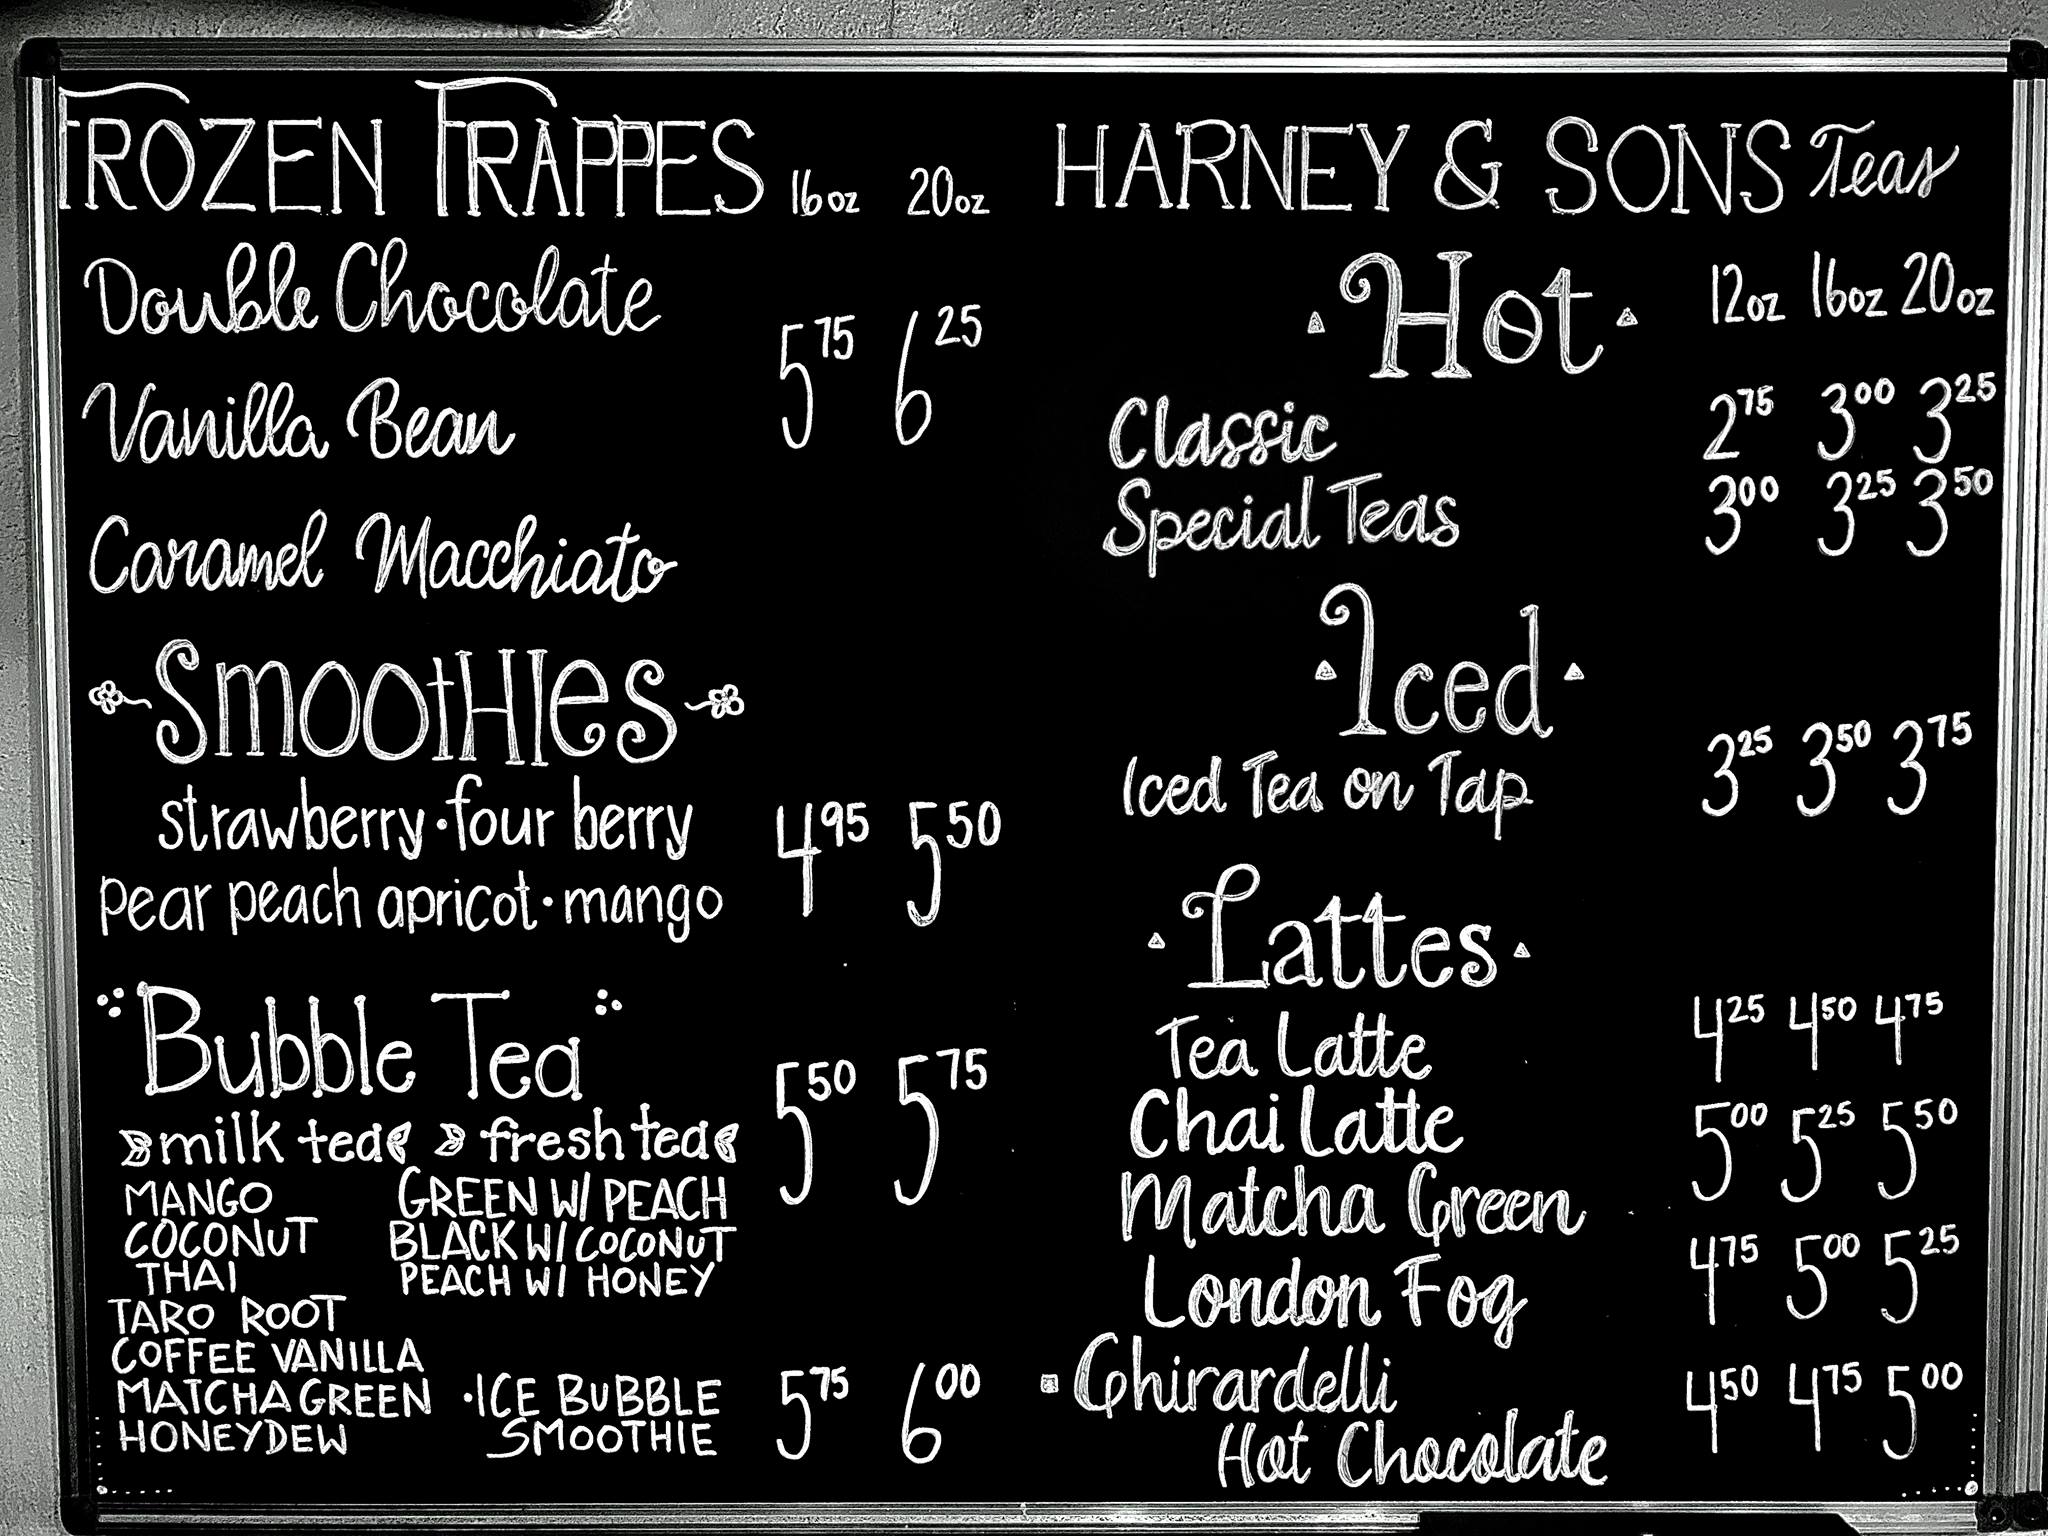 FROZEN FRAPPES 16oz 20oz
Double Chocolate
5 75 6 25
Vanilla Bean
Caramel Macchiato
Smoothies
strawberry · four berry
4 95 5 50
pear peach apricot · mango
Bubble Tea
5 50 5 75
milk tea fresh tea
MANGO GREEN W/ PEACH
COCONUT BLACK W/ COCONUT
THAI PEACH W/ HONEY
TARO ROOT
COFFEE VANILLA
MATCHA GREEN · ICE BUBBLE 5 75 6 00
HONEYDEW SMOOTHIE
HARNEY & SONS Teas
Hot 12oz 16oz 20oz
Classic 2 75 3 00 3 25
Special Teas 3 00 3 25 3 50
Iced
Iced Tea on Tap 3 25 3 50 3 75
Lattes
Tea Latte 4 25 4 50 4 75
Chai Latte 5 00 5 25 5 50
Matcha Green
London Fog 4 75 5 00 5 25
Ghirardelli 4 50 4 75 5 00
Hot Chocolate